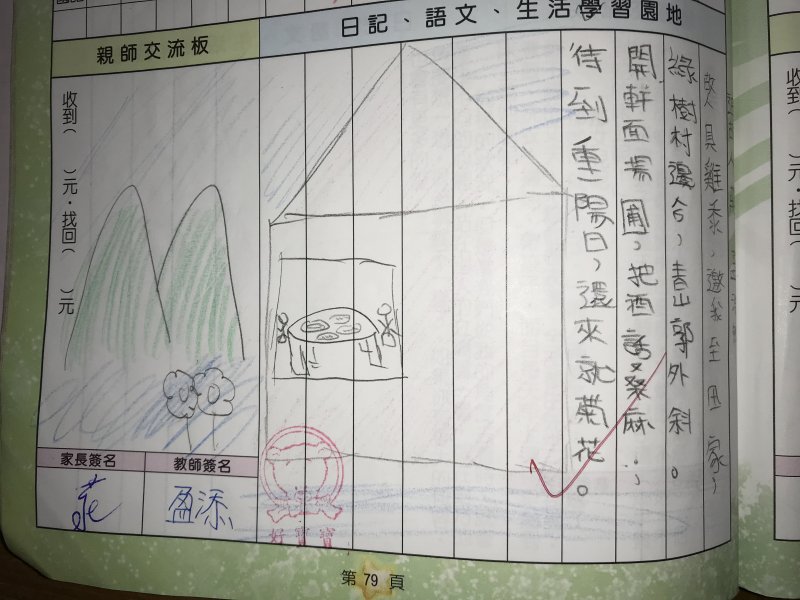 日記、語文、生活學習園地
親師交流板
收到(　　)元·找回(　　)元
具雞黍,邀我至田家,
綠樹村邊合,青山郭外斜。
開軒面場圃,把酒話桑麻.;
待到重陽日,還來就菊花。
家長簽名
教師簽名
盈添
好寶寶
第 79 頁
收到(
元·找回